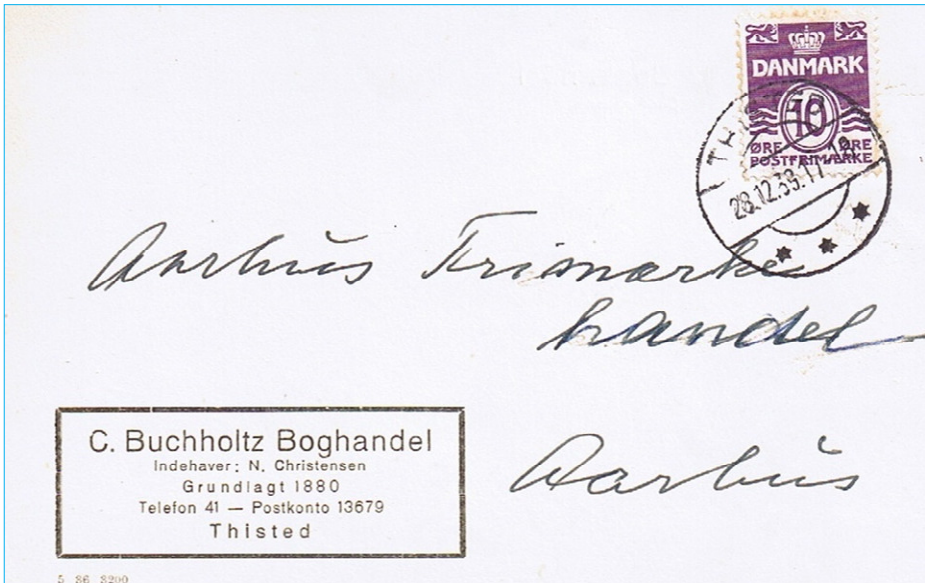 DANMARK
10
ØRE ØRE
POSTFRIMÆRKE
THISTED
28.12.39.17-18
Aarhus Frimærke
handel
Aarhus
C. Buchholtz Boghandel
Indehaver: N. Christensen
Grundlagt 1880
Telefon 41 — Postkonto 13679
Thisted
5 36 3200